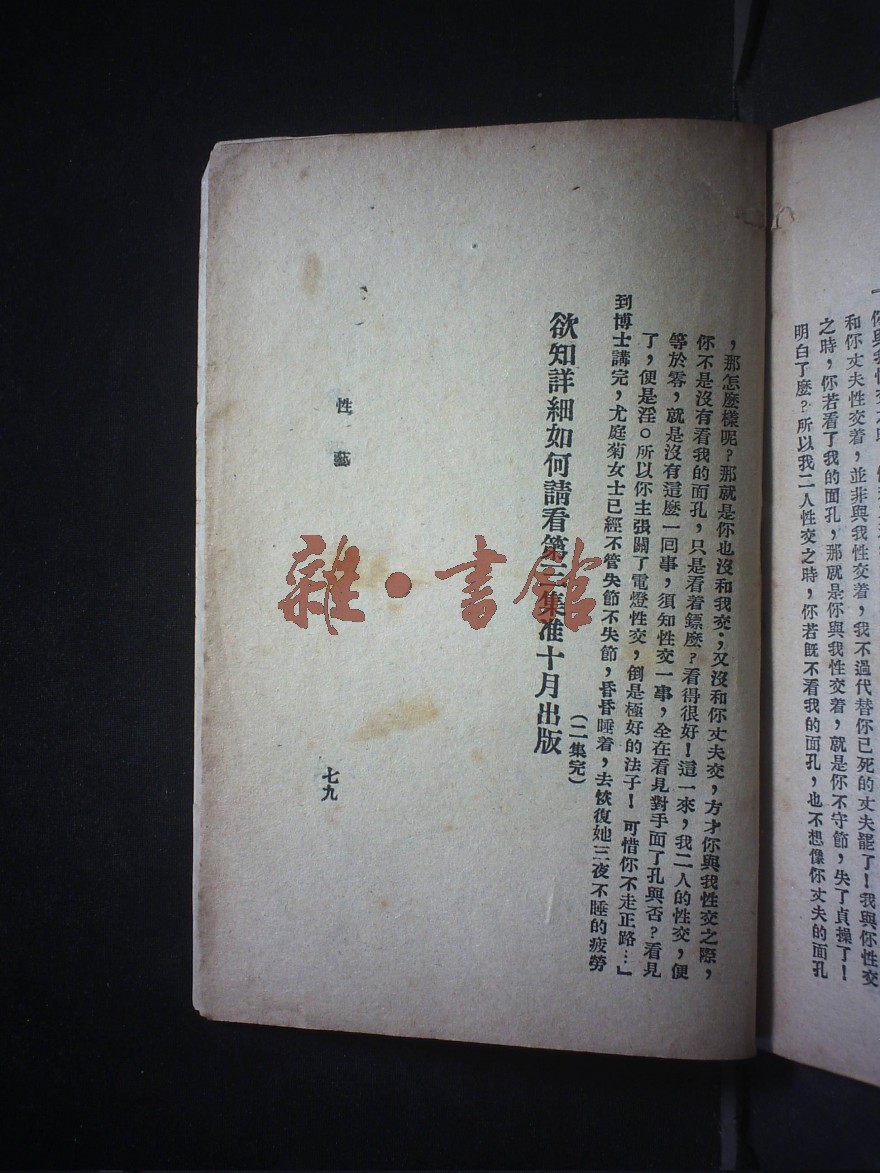 和你丈夫性交着，並非與我性交着，我不過代替你已死的丈夫罷了！我與你性交
之時，你若看了我的面孔，那就是你與我性交着，就是你不守節，失了貞操了！
明白了麽？所以我二人性交之時，你若旣不看我的面孔，也不想像你丈夫的面孔
，那怎麽樣呢？那就是你也沒和我交；又沒和你丈夫交，方才你與我性交之際，
你不是沒有看我的面孔，只是看着鏢麽？看得很好！這一來，我二人的性交，便
等於零，就是沒有這麽一回事，須知性交一事，全在看見對手面了孔與否？看見
了，便是淫。所以你主張關了電燈性交，倒是極好的法子！可惜你不走正路…」
到博士講完，尤庭菊女士已經不管失節不失節，昏昏睡着，去恢復她三夜不睡的疲勞
（二集完）
欲知詳細如何請看第三集准十月出版
性藝
七九
雜·書館